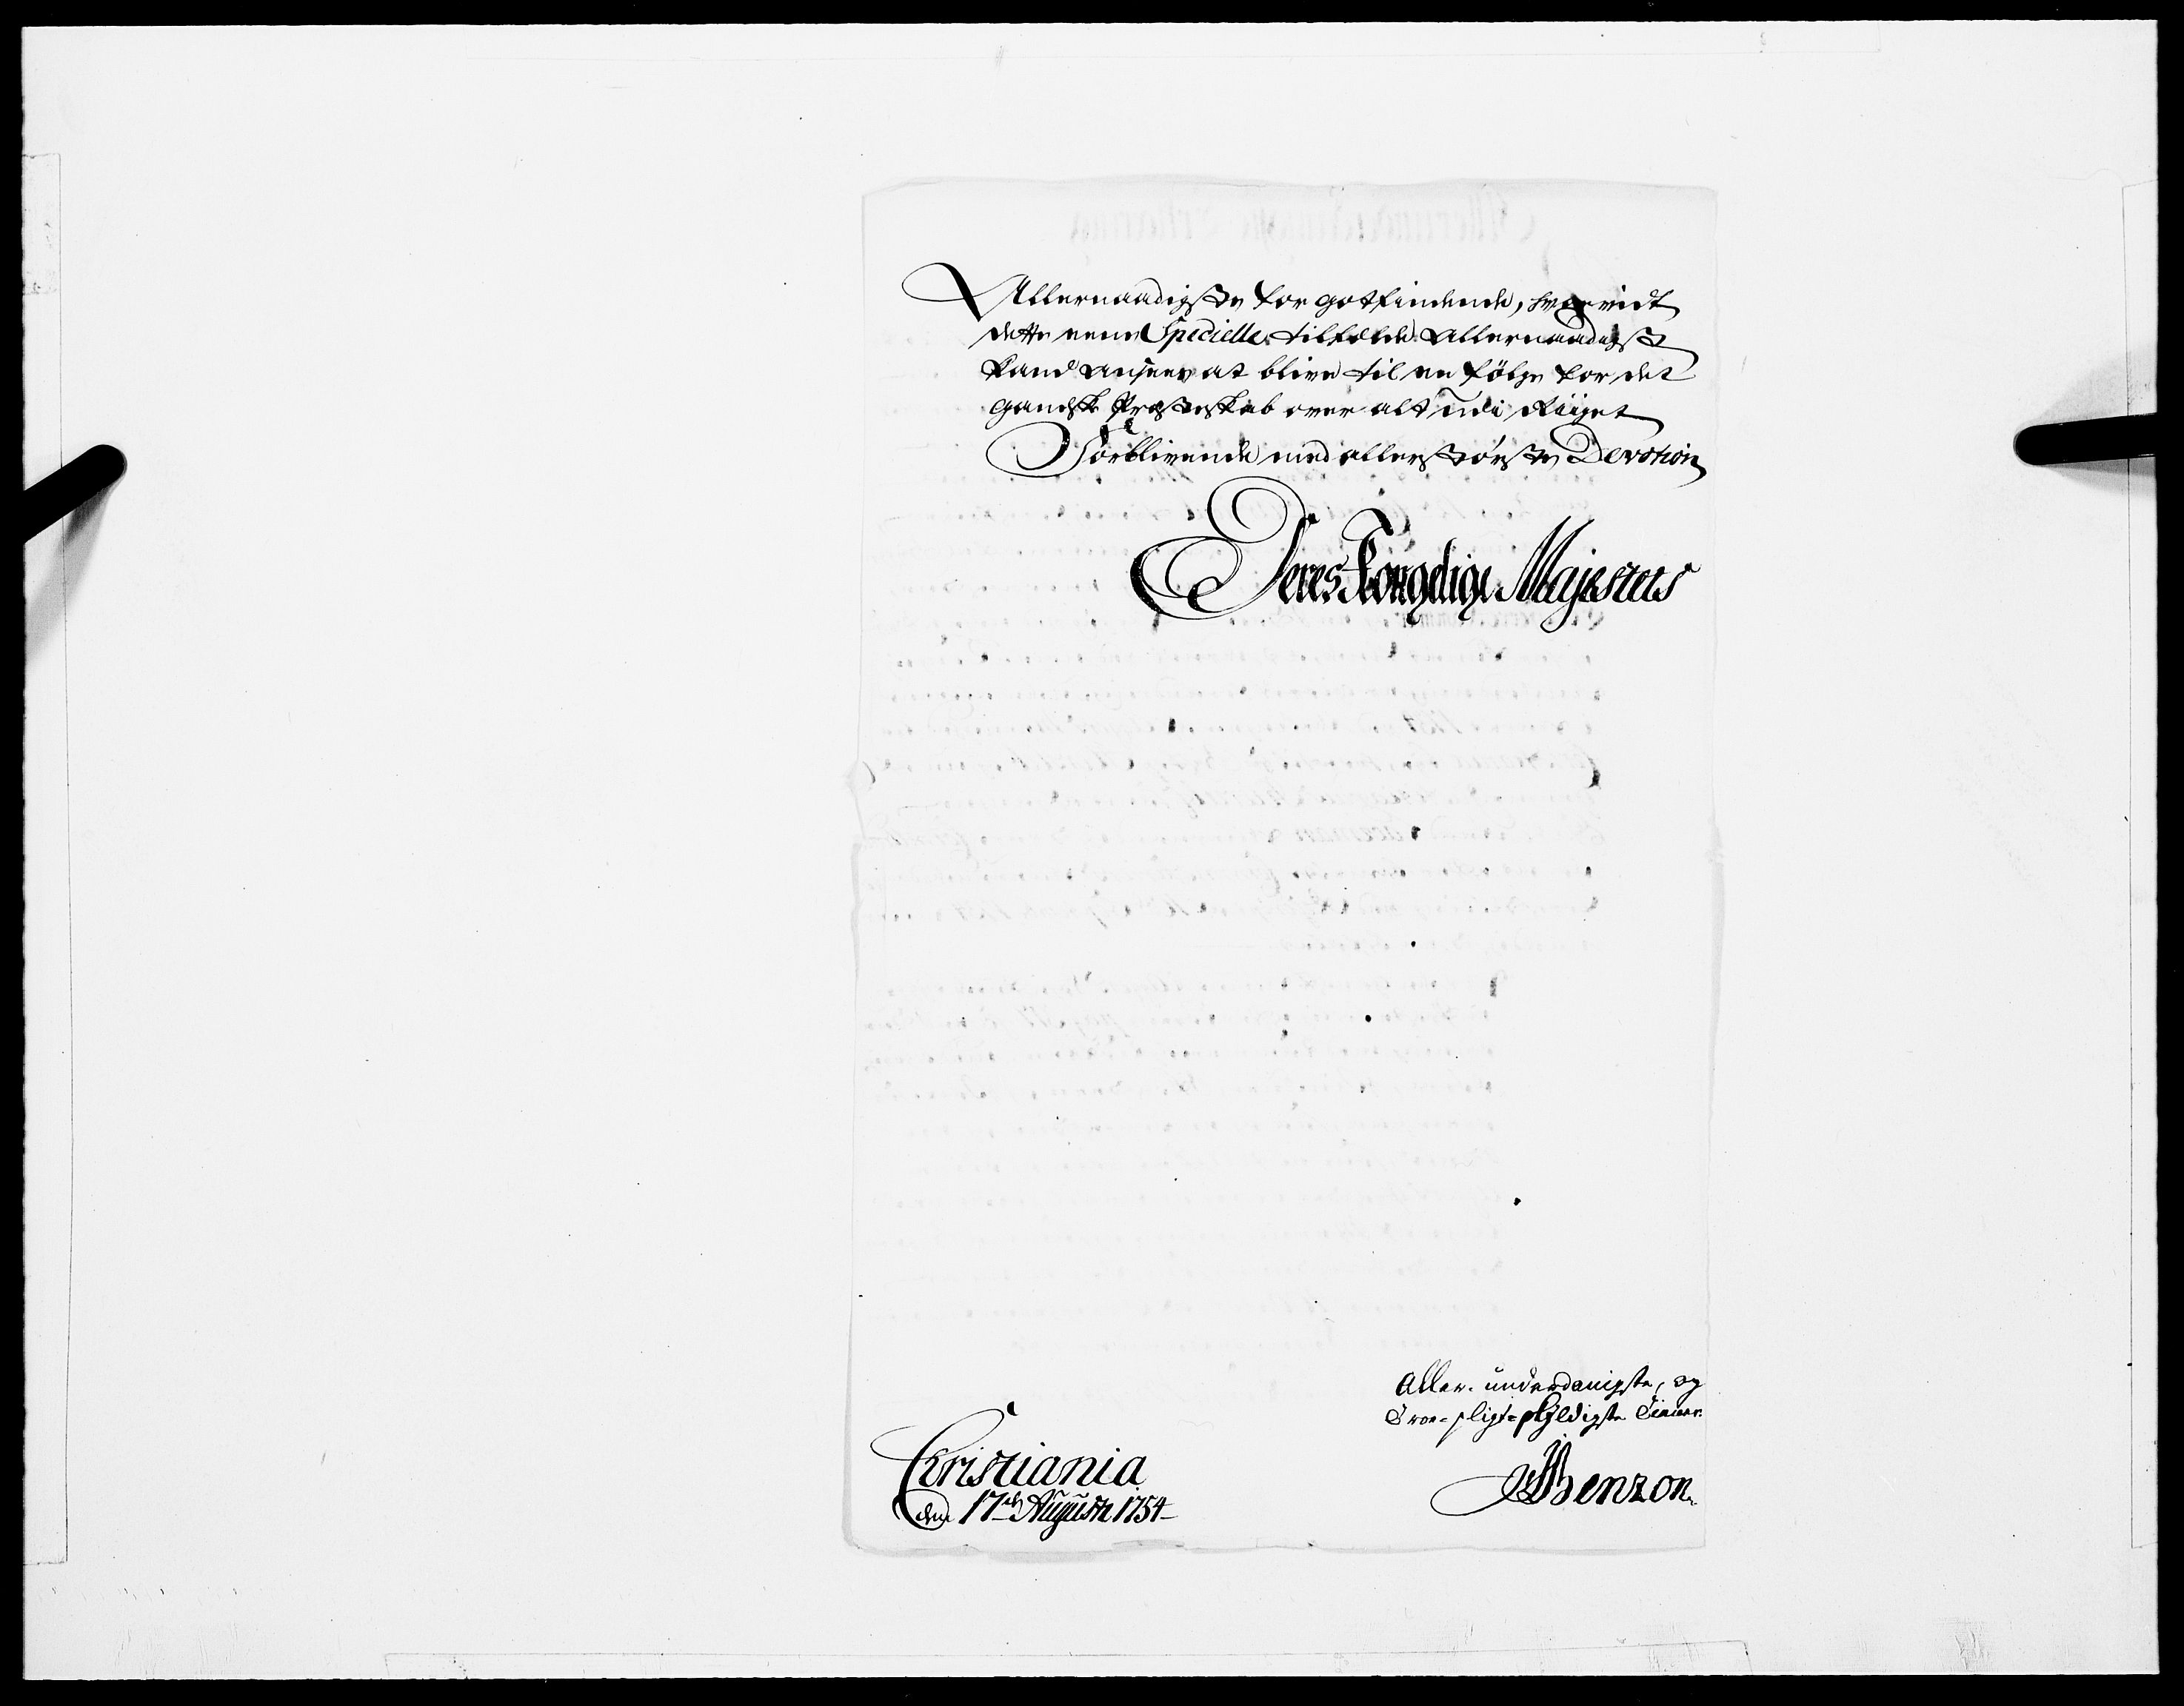 Allernaadigste for gotfindende, hvorvidt
dette eene Specielle tilfælde Allernaadigst
kand ansees at blive til en følge for det
gandske Præsteskab over alt udi Riiget
Forblivende med allerstørste Devotion
Deres Kongelige Majestets
Aller-underdanigste, og
Troe-pligt-skyldigste Tienner.
Benzon.
Christiania
den 17de Augusti 1754